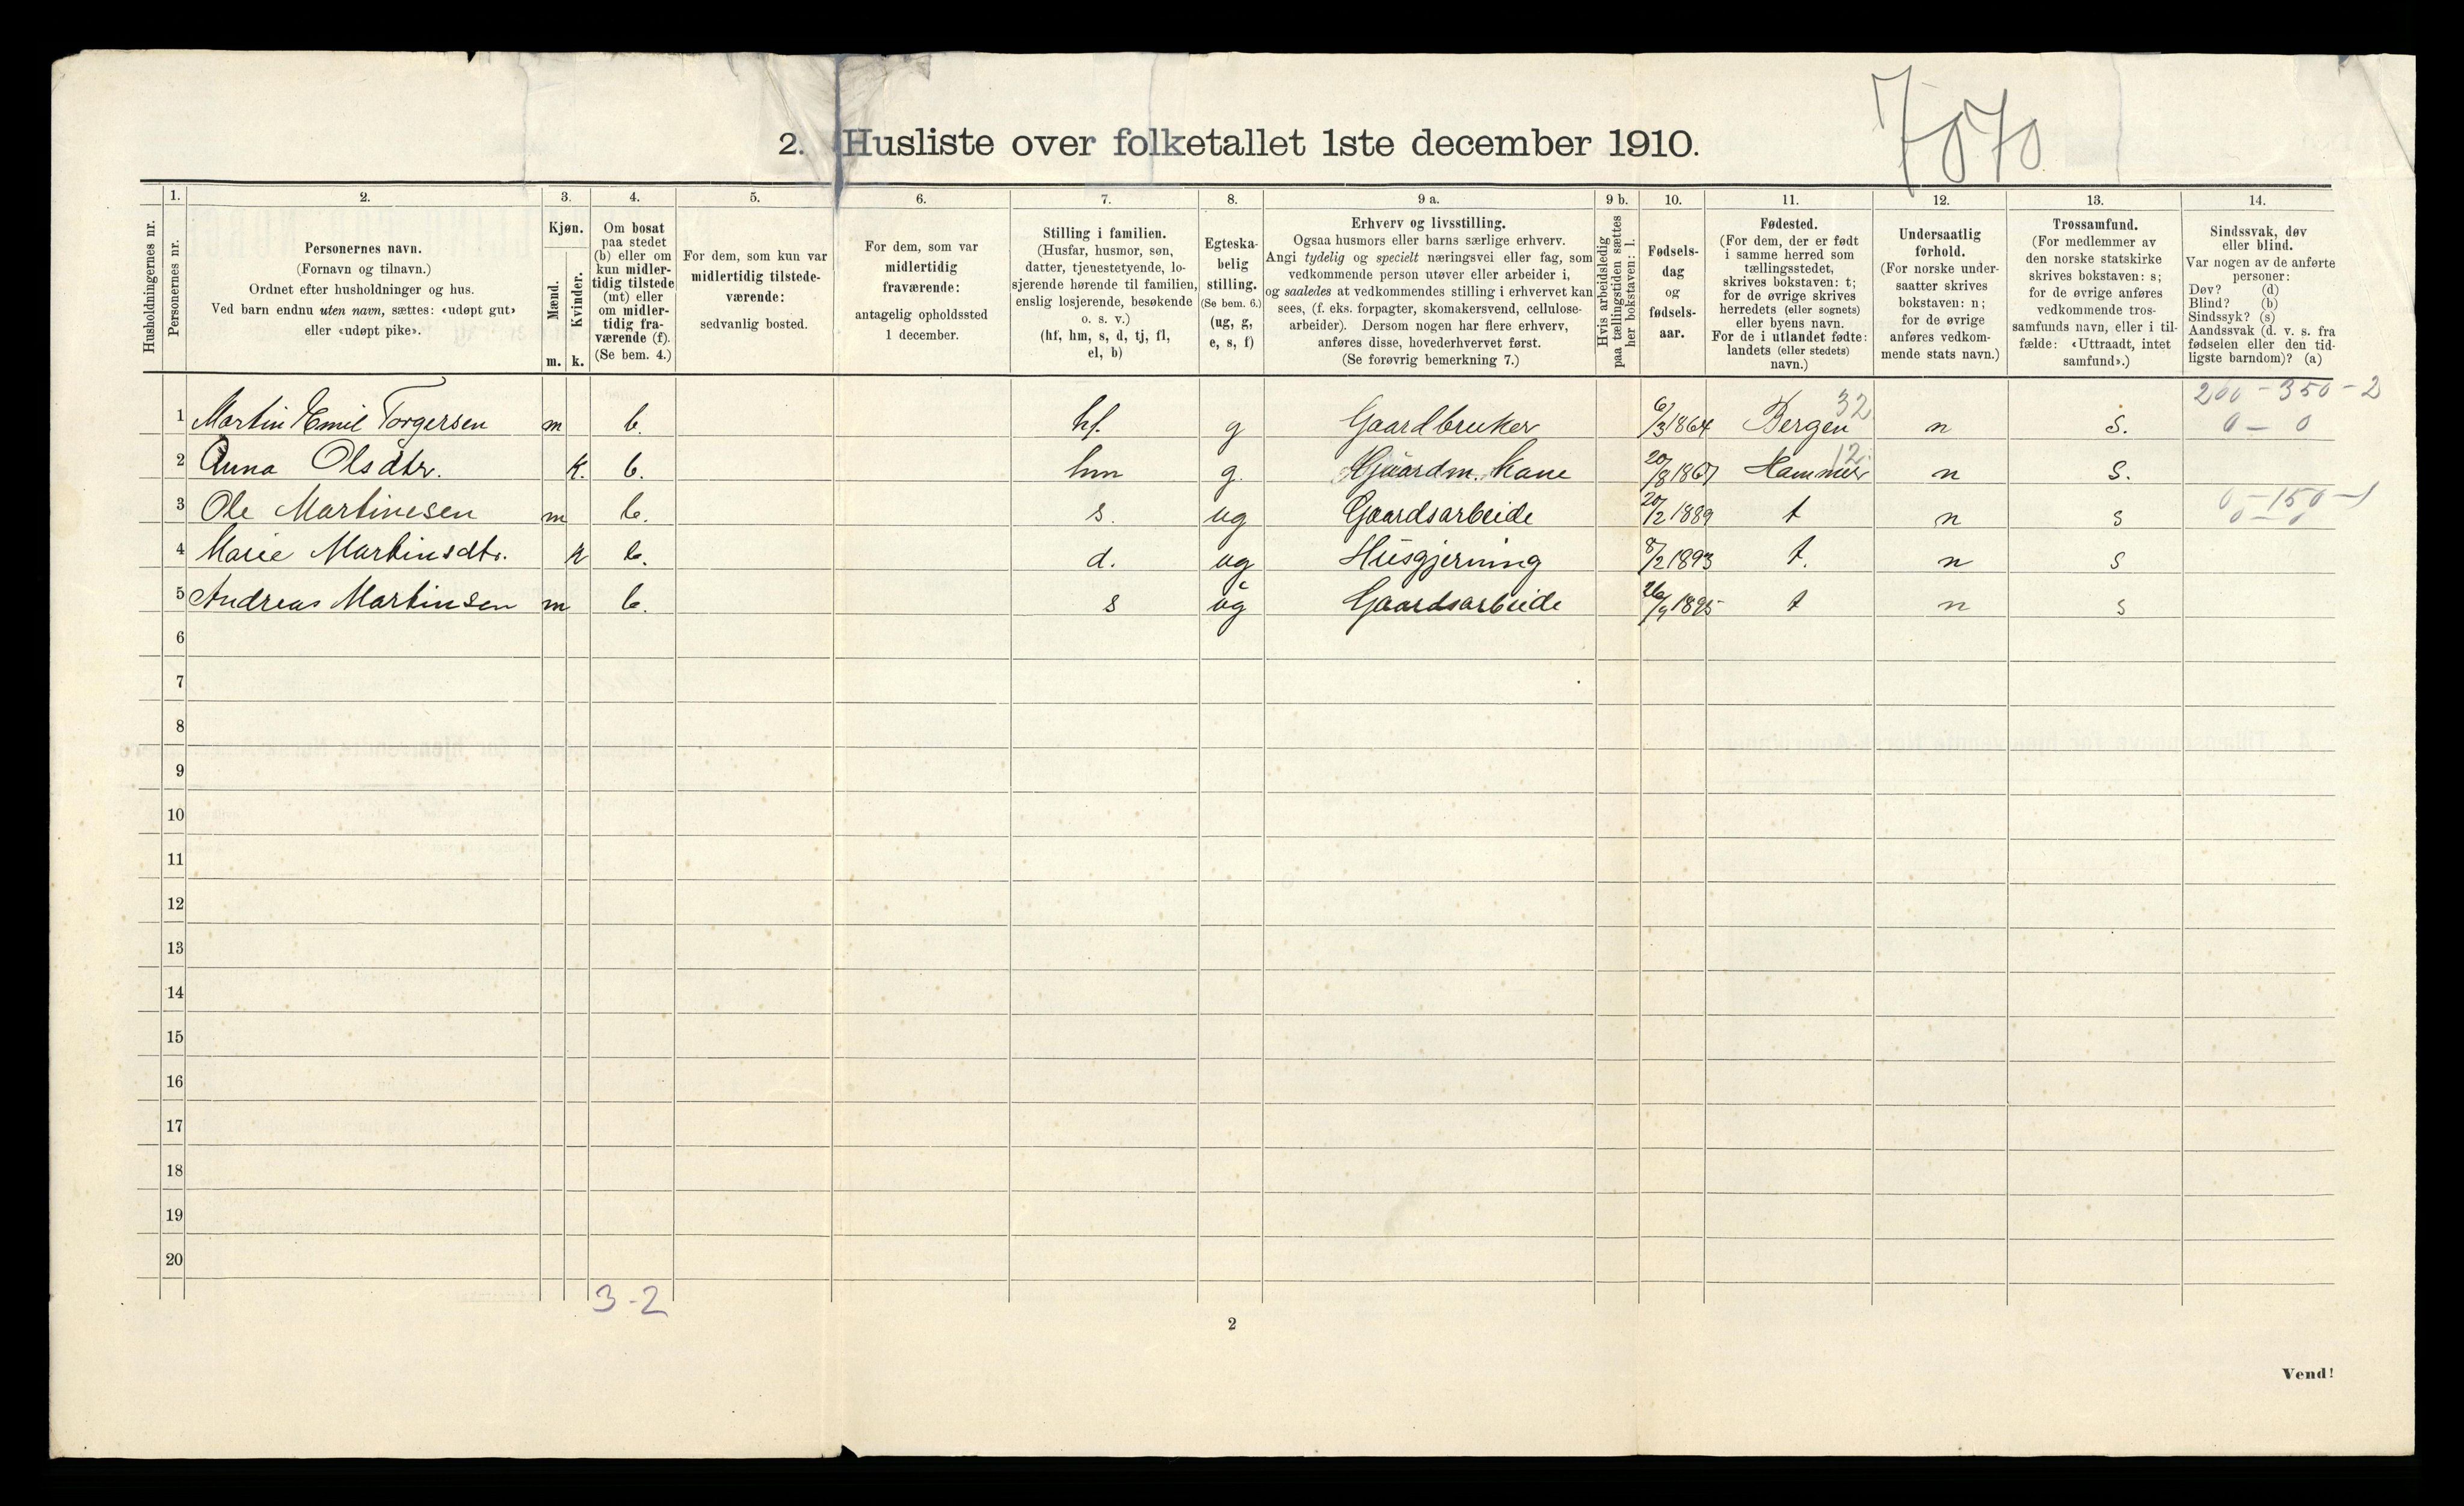 7070
2. Husliste over folketallet 1ste december 1910.
1. 2. 3. 4. 5. 6. 7. 8. 9 a. 9 b. 10. 11. 12. 13. 14.
Husholdningernes nr.
Personernes nr.
Personernes navn.
(Fornavn og tilnavn.)
Ordnet efter husholdninger og hus.
Ved barn endnu uten navn, sættes: «udøpt gut»
eller «udøpt pike».
Kjøn.
Mænd.
Kvinder.
m. k.
Om bosat
paa stedet
(b) eller om
kun midler-
tidig tilstede
(mt) eller
om midler-
tidig fra-
værende (f).
(Se bem. 4.)
For dem, som kun var
midlertidig tilstede-
værende:
sedvanlig bosted.
For dem, som var
midlertidig
fraværende:
antagelig opholdssted
1 december.
Stilling i familien.
(Husfar, husmor, søn,
datter, tjenestetyende, lo-
sjerende hørende til familien,
enslig losjerende, besøkende
o. s. v.)
(hf, hm, s, d, tj, fl,
el, b)
Egteska-
belig
stilling.
(Se bem. 6.)
(ug, g,
e, s, f)
Erhverv og livsstilling.
Ogsaa husmors eller barns særlige erhverv.
Angi tydelig og specielt næringsvei eller fag, som
vedkommende person utøver eller arbeider i,
og saaledes at vedkommendes stilling i erhvervet kan
sees, (f. eks. forpagter, skomakersvend, cellulose-
arbeider). Dersom nogen har flere erhverv,
anføres disse, hovederhvervet først.
(Se forøvrig bemerkning 7.)
Hvis arbeidsledig
paa tællingstiden sættes
her bokstaven: l.
Fødsels-
dag
og
fødsels-
aar.
Fødested.
(For dem, der er født
i samme herred som
tællingsstedet,
skrives bokstaven: t;
for de øvrige skrives
herredets (eller sognets)
eller byens navn.
For de i utlandet fødte:
landets (eller stedets)
navn.)
Undersaatlig
forhold.
(For norske under-
saatter skrives
bokstaven: n;
for de øvrige
anføres vedkom-
mende stats navn.)
Trossamfund.
(For medlemmer av
den norske statskirke
skrives bokstaven: s;
for de øvrige anføres
vedkommende tros-
samfunds navn, eller i til-
fælde: «Uttraadt, intet
samfund».)
Sindssvak, døv
eller blind.
Var nogen av de anførte
personer:
Døv? (d)
Blind? (b)
Sindssyk? (s)
Aandssvak (d. v. s. fra
fødselen eller den tid-
ligste barndom)? (a)
32 200 - 350 - 2
1 Martin Emil Torgersen m b. hf. g Gaardbruker 6/3 1864 Bergen n S. 0 - 0
2 Anna Olsdtr. k. b. hm g. Gaardm. Kone 20/8 1867 Hammer 12. n S.
3 Ole Martinesen m b. s. ug Gaardsarbeide 20/2 1889 t n s 0 - 150 - 1 0 - 0
4 Marie Martinsdtr. k b. d. ug Husgjerning 8/2 1893 t. n s
5 Andreas Martinsen m b. s ug Gaardsarbeide 26/9 1895 t n s
6
7
8
9
10
11
12
13
14
15
16
17
18
19
20
3 - 2
2
Vend!